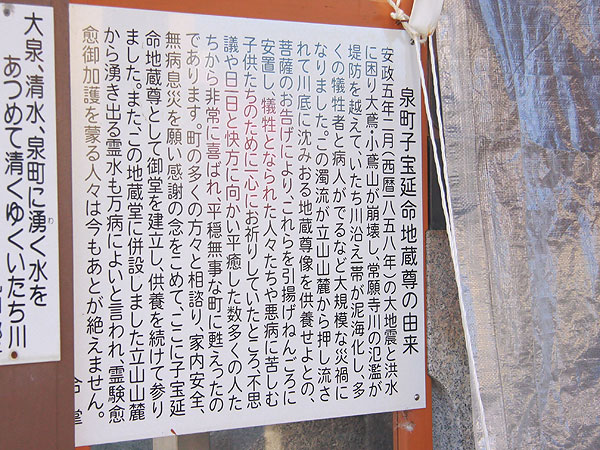 泉町子宝延命地蔵尊の由来
安政五年二月（西暦一八五八年）の大地震と洪水
に困り大鳶・小鳶山が崩壊し、常願寺川の氾濫が
堤防を越えて、いたち川沿え一帯が泥海化し、多
くの犠牲者と病人がでるなど大規模な災禍に
なりました。この濁流が立山山麓から押し流さ
れて川底に沈みおる地蔵尊像を供養せよとの、
菩薩のお告げにより、これらを引揚げねんごろに
安置し、犠牲となられた人々たちや悪病に苦しむ
子供たちのために一心にお祈りしていたところ、不思
議や日一日と快方に向かい平癒した数多くの人た
ちから非常に喜ばれ、平穏無事な町に甦えったの
であります。町の多くの方々と相談り、家内安全、
無病息災を願い感謝の念をこめて、ここに子宝延
命地蔵尊として御堂を建立し、供養を続けて参り
ました。また、この地蔵堂に併設しました立山山麓
から湧き出る霊水も万病によいと言われ、霊験愈
愈御加護を蒙る人々は今もあとが絶えません。
合掌
大泉、清水、泉町に湧く水を
わ
あつめて清くゆくいたち川